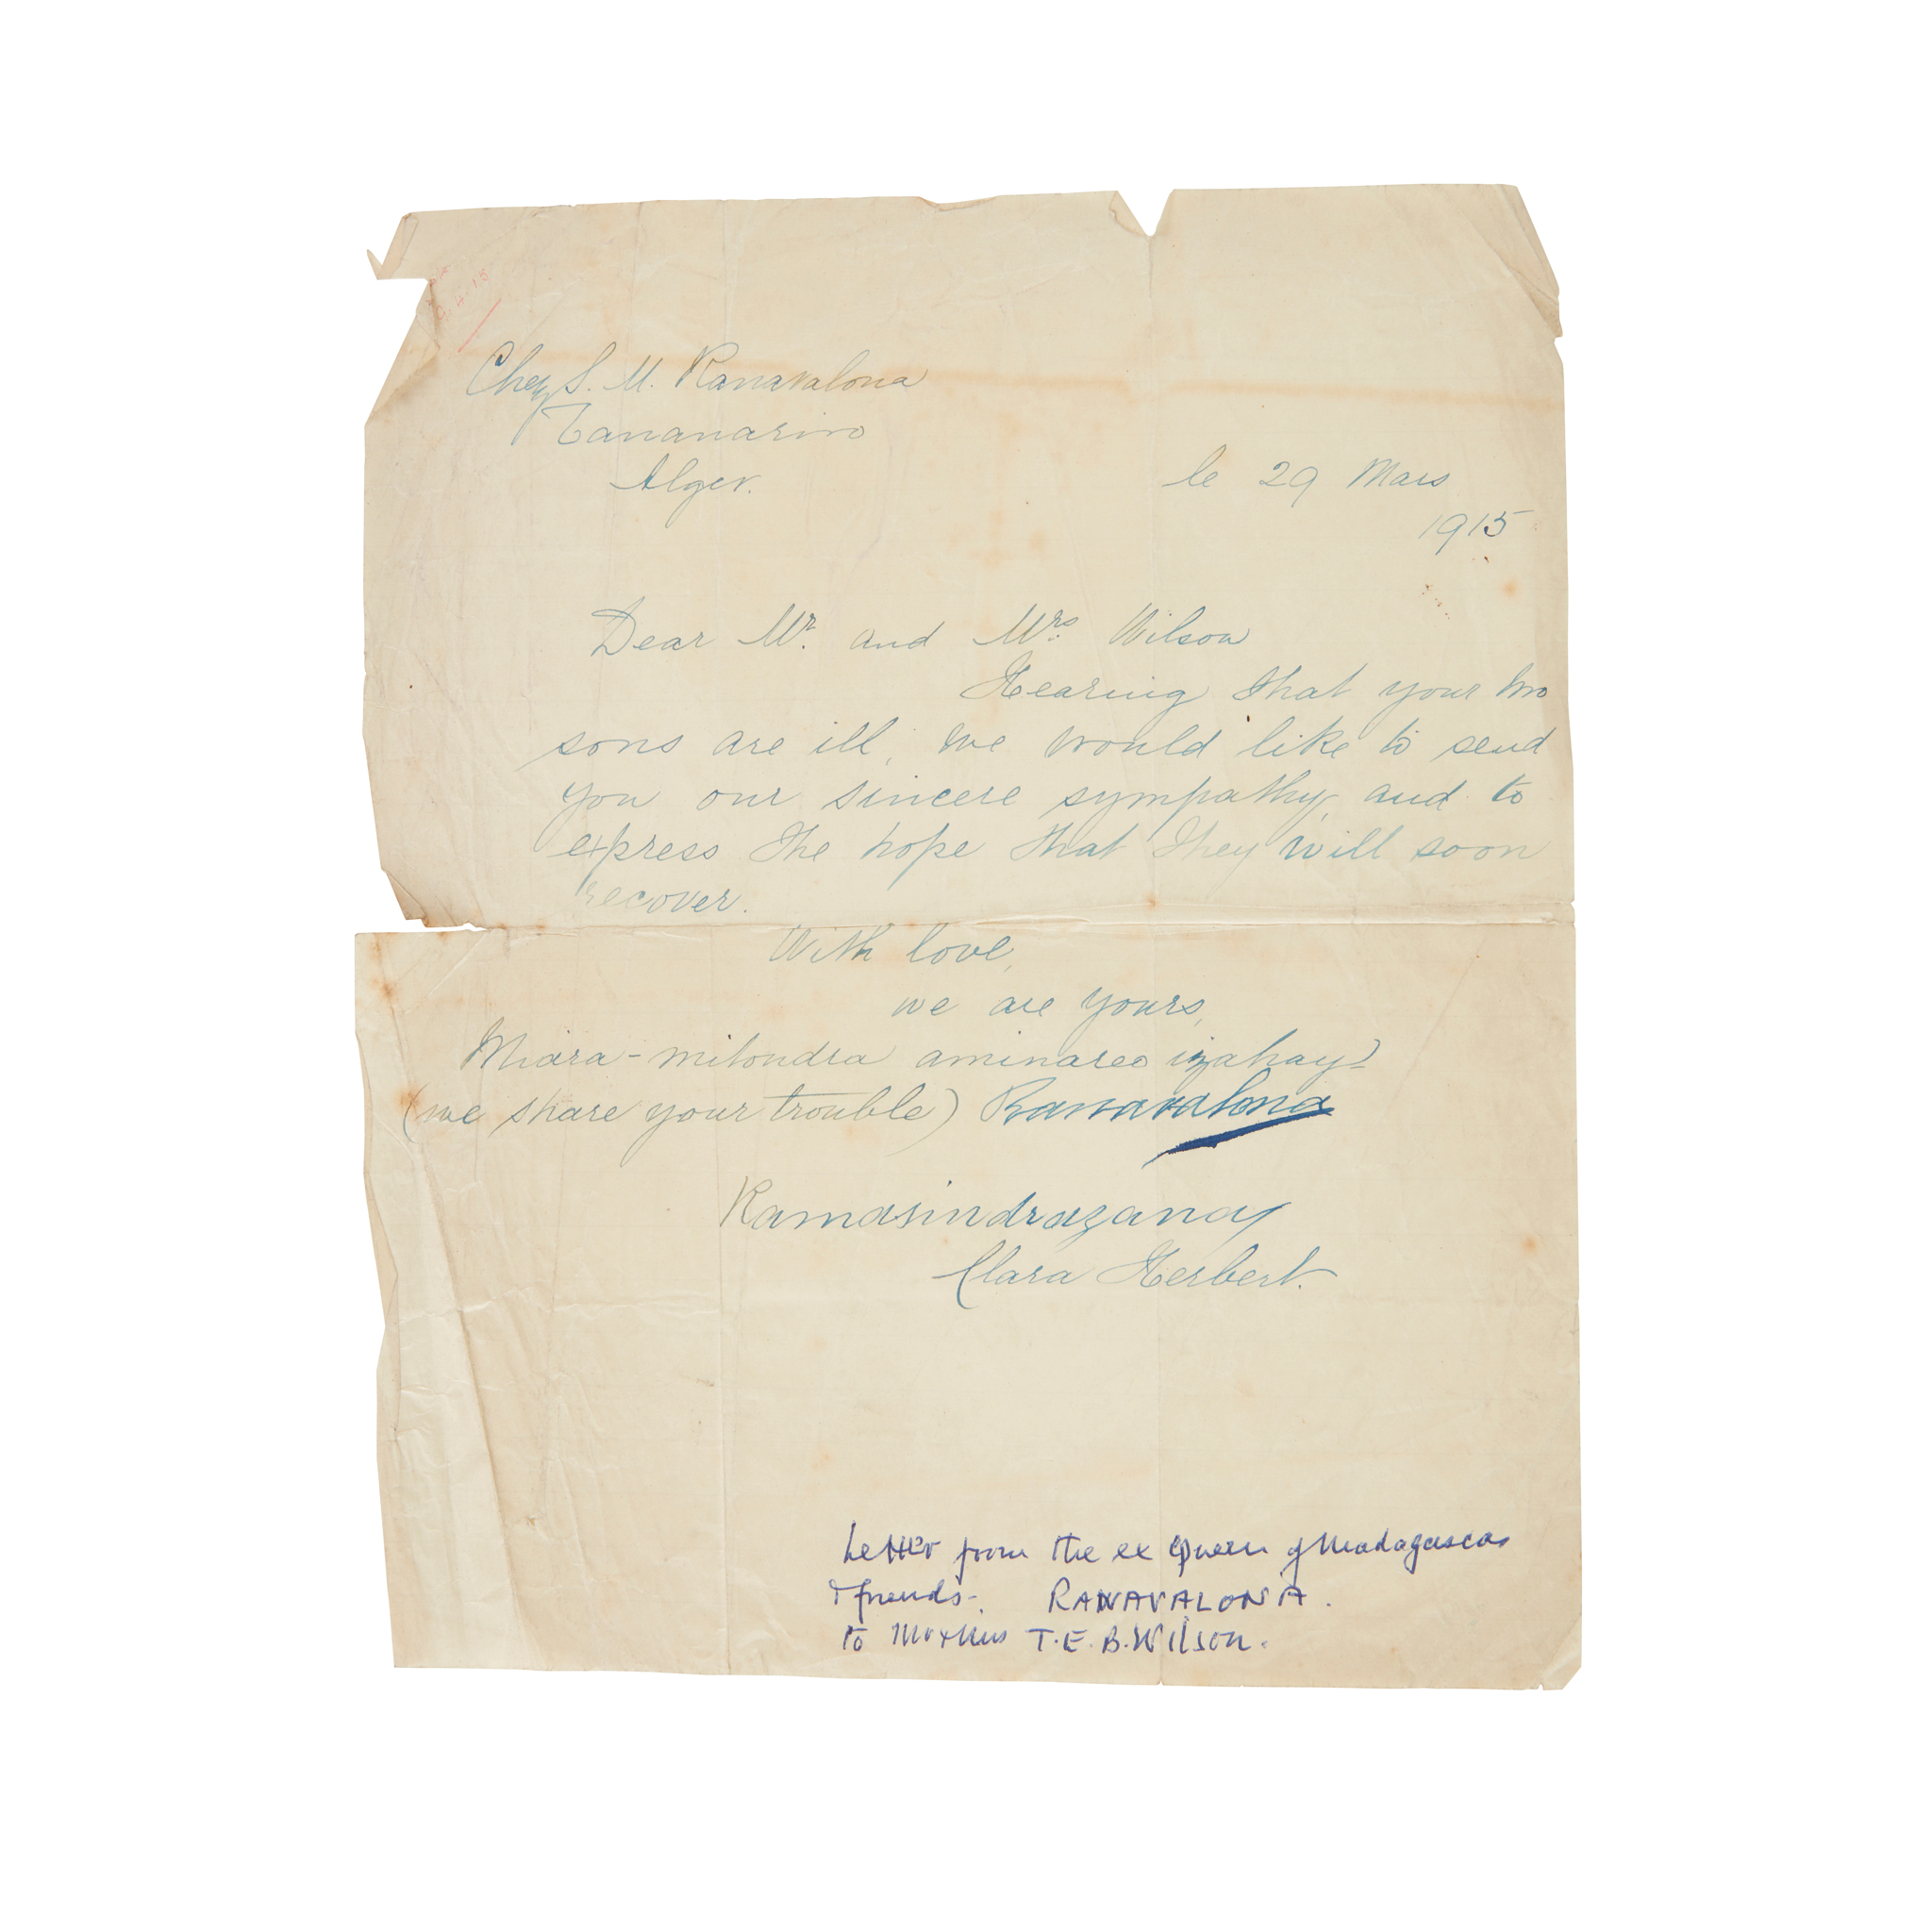 Chez S. M. Ranavalona
Tananarivo
Alger.
le 29 Mars
1915
Dear Mr. and Mrs. Wilson
Hearing that your two
sons are ill, we would like to send
you our sincere sympathy, and to
express the hope that they will soon
recover.
With love,
we are yours,
Miara-mitondra aminareo izahay
(we share your trouble) Ranavalona
Ramasindrazana
Clara Herbert.
Letter from the ex Queen of Madagascar
& friends. RANAVALONA.
to Mr & Mrs T.E.B. Wilson.